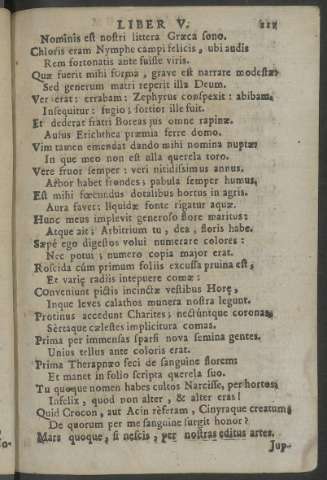 LIBER V. 111
Nominis est nostri littera Græca sono.
Chloris eram Nymphe campi felicis, ubi audis
Rem fortonatis ante fuisse viris.
Quæ fuerit mihi forma, grave est narrare modestæ:
Sed generum matri reperit illa Deum.
Ver erat: errabam: Zephyrus conspexit: abibam.
Insequitur: fugio; fortior ille fuit.
Et dederat fratri Boreas jus omne rapinæ,
Ausus Erichthea præmia ferre domo.
Vim tamen emendat dando mihi nomina nuptæ:
In que meo non est ulla querela toro.
Vere fruor semper: veri nitidissimus annus.
Arbor habet frondes; pabula semper humus.
Est mihi fœcundus dotalibus hortus in agris.
Aura favet; liquidæ fonte rigatur aquæ.
Hunc meus implevit generoso flore maritus:
Atque ait; Arbitrium tu, dea, floris habe.
Sæpè ego digestos volui numerare colores:
Nec potui; numero copia major erat.
Roscida cùm primum foliis excussa pruina est,
Et variæ radiis intepuere comæ:
Conveniunt pictis incinctæ vestibus Horę,
Inque leves calathos munera nostra legunt.
Protinus accedunt Charites; nectùntque coronas,
Sèrtaque cælestes implicitura comas.
Prima per immensas sparsi nova semina gentes.
Unius tellus ante coloris erat.
Prima Therapnæo feci de sanguine florem
Et manet in folio scripta querela suo.
Tu quoque nomen habes cultos Narcisse, per hortos,
Infelix, quod non alter, & alter eras!
Quid Crocon, aut Acin rèferam, Cinyraque creatum,
De quorum per me sanguine surgit honor?
Mars quoque, si nescis, per nostras editus artes.
Jup-